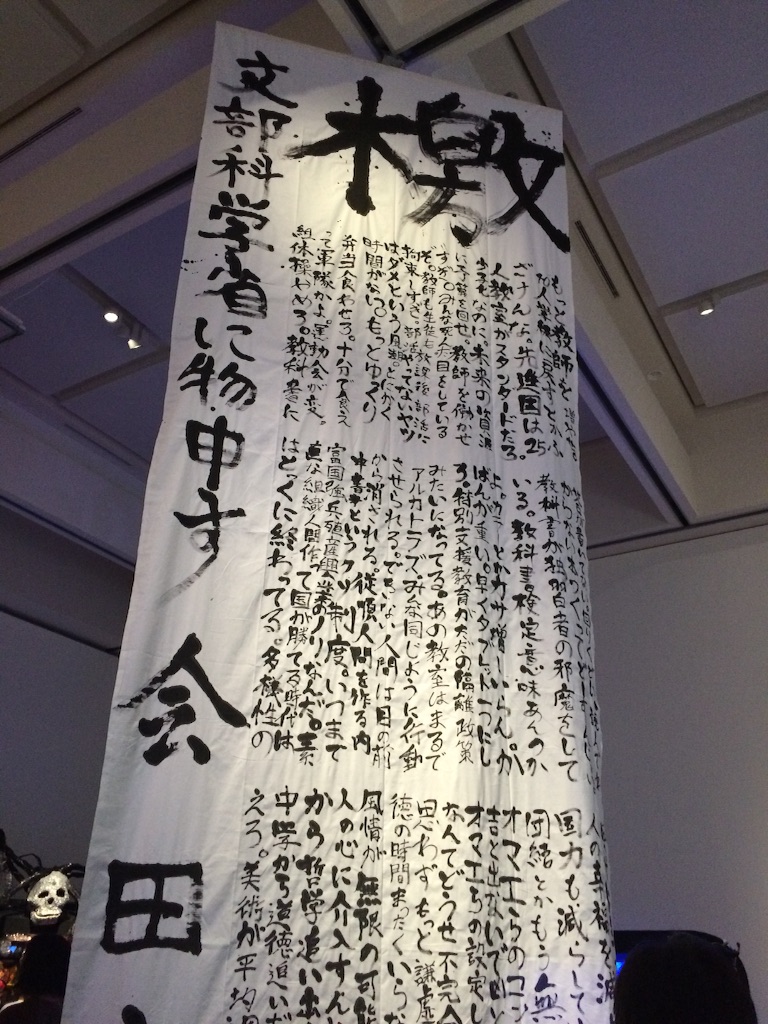 檄
もっと教師を増やせ
40人学級に戻すとかふ
ざけんな。先進国は25
人教室がスタンダードだろ。
少子化なのに。未来の資源
に予算を回せ。教師を働かせ
すぎ。みんな死んだ目をしている
ぞ。教師も生徒も放課後部活に
拘束しすぎ。部活やってないヤツ
はダメという風潮。とにかく
時間がない。もっとゆっくり
弁当食わせろ。十分で食えっ
て軍隊かよ。運動会が変。
組体操やめろ。教科書に
教科書が独習者の邪魔をして
いる。教科書検定意味あんのか
よ。カラーとかカサ増しいらん。か
ばんが重い。早くタブレット一つにし
ろ。特別支援教育がただの隔離政策
みたいになってる。あの教室はまるで
アルカトラズ。みな同じように行動
させられる。できない人間は目の前
から消される。従順人間を作る内
申書というクソ制度。いつまで
富国強兵殖産興業のノリなんだ。素
直な組織人間作って国が勝てる時代は
とっくに終わってる。多様性の
国力も減らして
団結とかもう無
オマエらのコン
吉と出ないで凶
オマエらの設定し
なんてどうせ不完全
思わずもっと謙虚
徳の時間まったくいらな
風情が無限の可能
人の心に介入すん
から哲学追い出
中学から道徳追いだ
えろ。美術が平均
文部科学省に物申す
会田